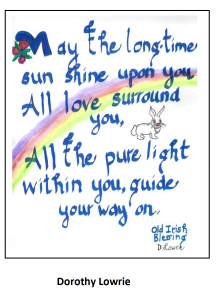 May the long-time
sun shine upon you
All love surround
you,
All the pure light
within you, guide
your way on.
Old Irish
Blessing
D. Lowrie
Dorothy Lowrie